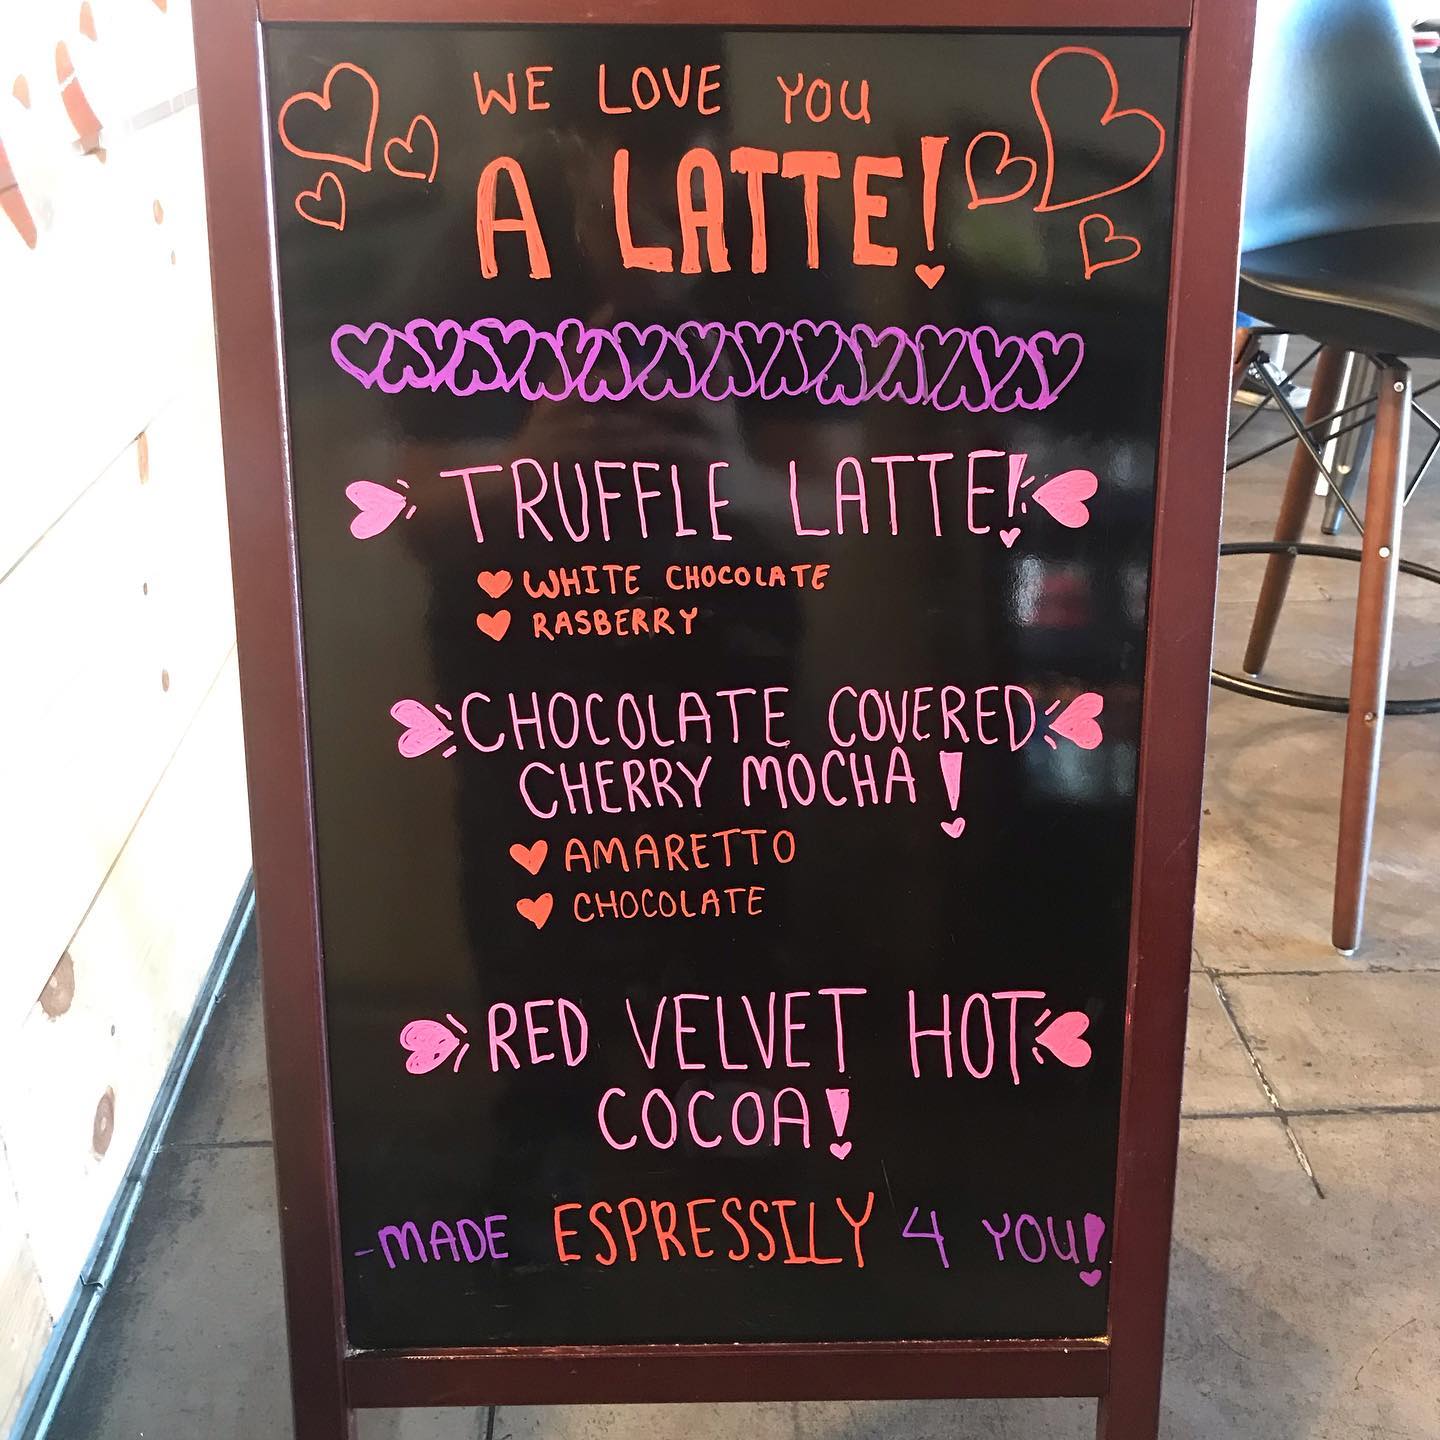 WE LOVE YOU
A LATTE!
TRUFFLE LATTE!
WHITE CHOCOLATE
RASBERRY
CHOCOLATE COVERED
CHERRY MOCHA!
AMARETTO
CHOCOLATE
RED VELVET HOT
COCOA!
-MADE ESPRESSILY 4 YOU!